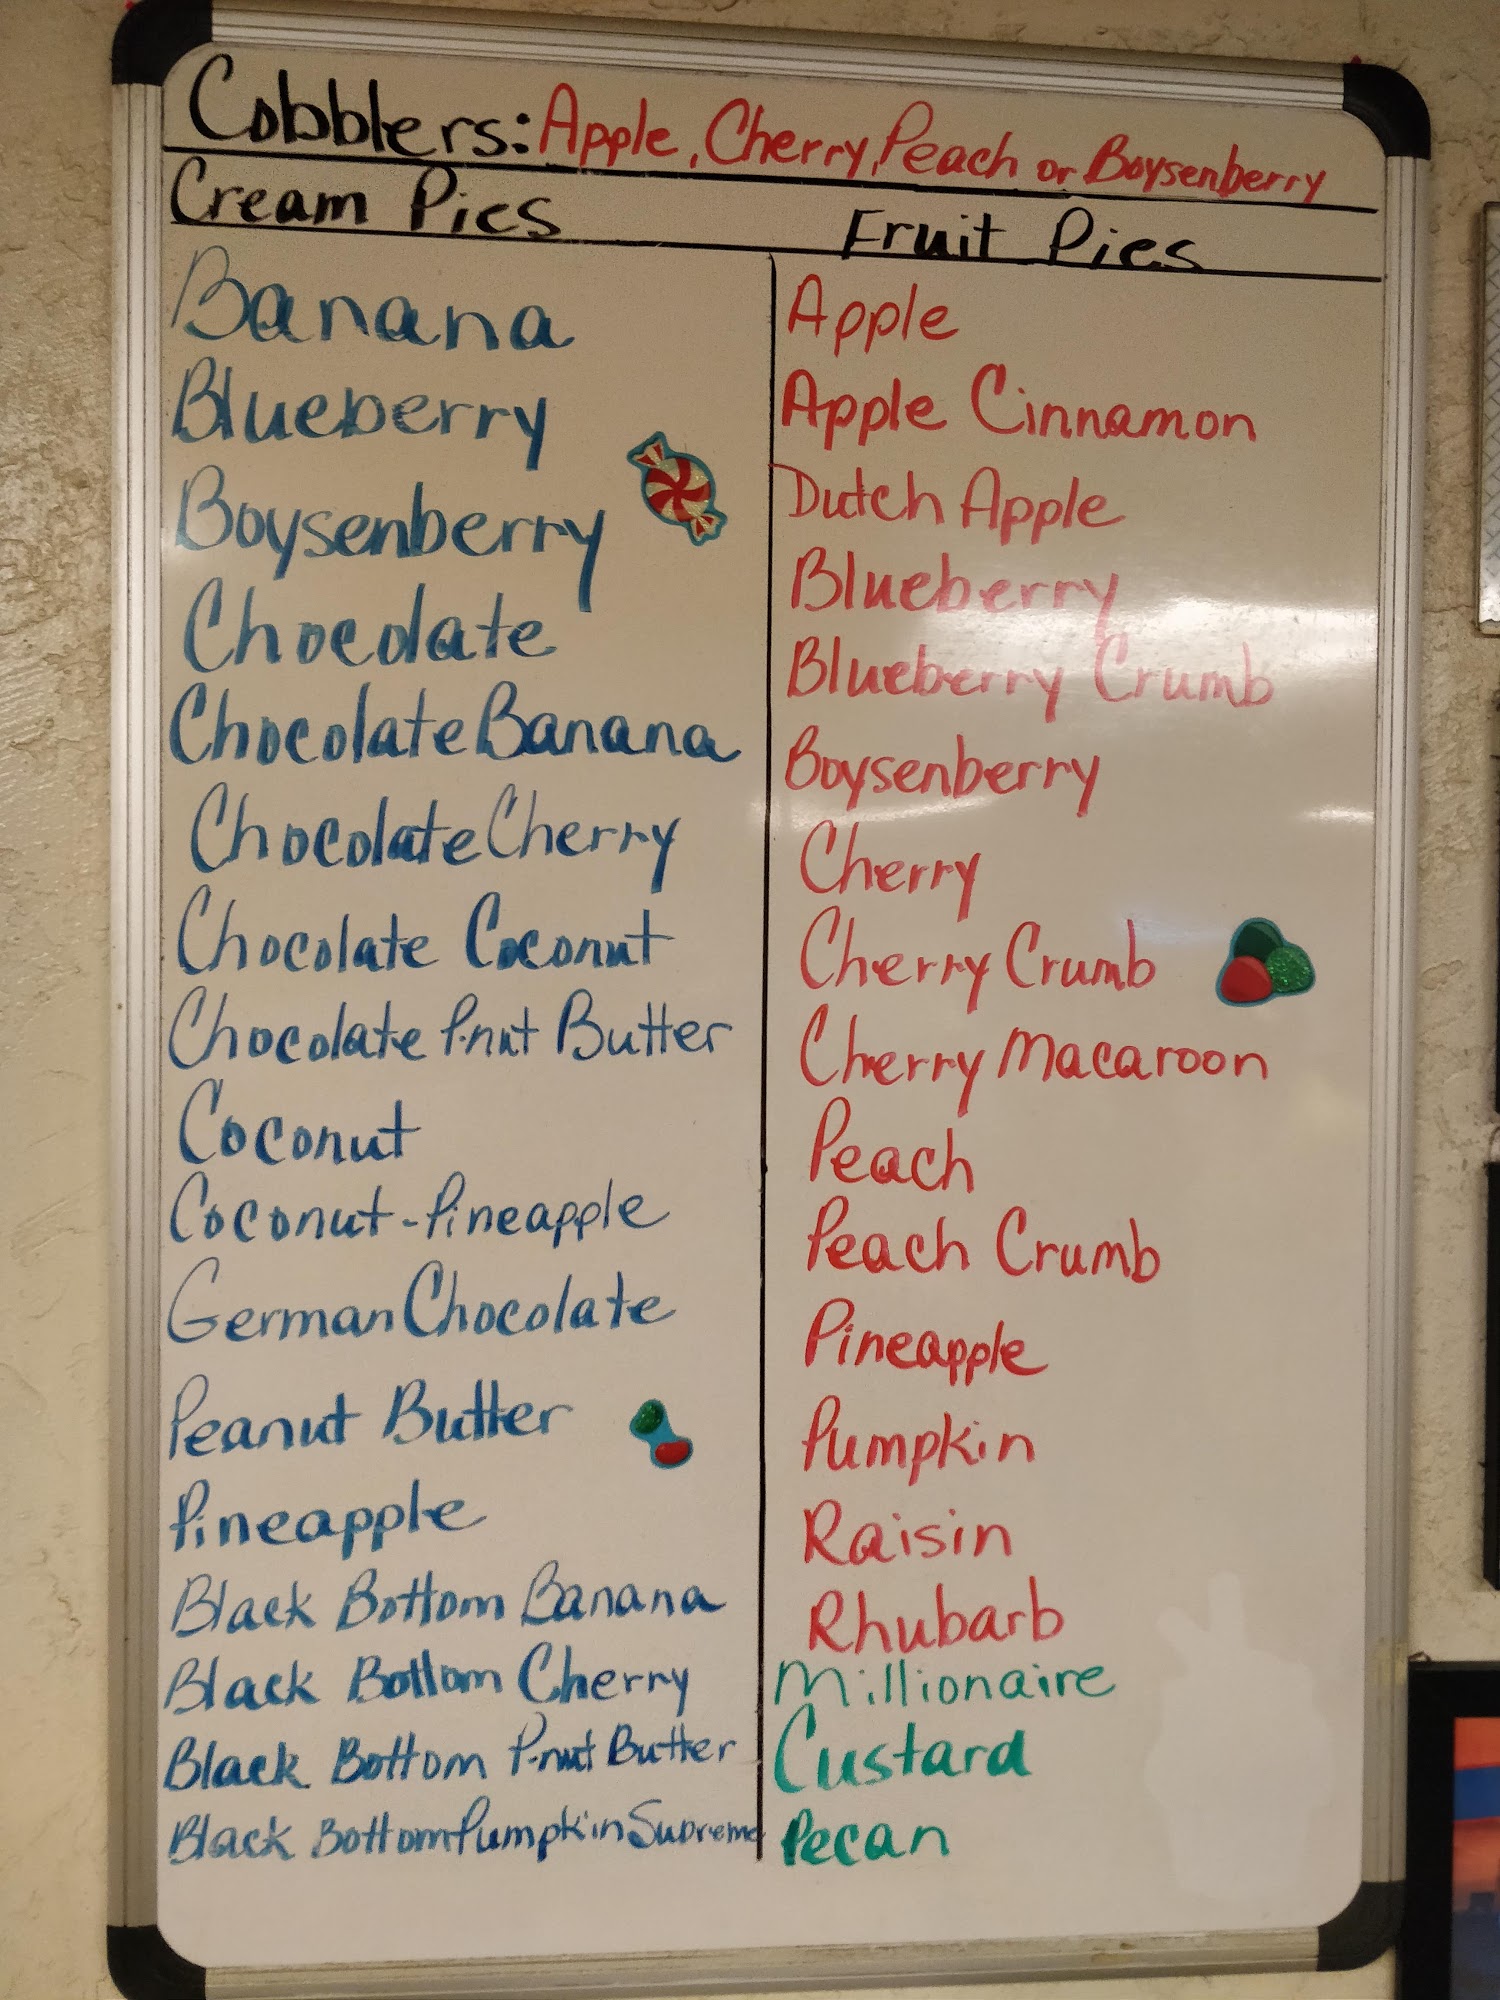 Cobblers: Apple, Cherry, Peach or Boysenberry
Cream Pies
Banana
Blueberry
Boysenberry
Chocolate
Chocolate Banana
Chocolate Cherry
Chocolate Coconut
Chocolate P-nut Butter
Coconut
Coconut-Pineapple
German Chocolate
Peanut Butter
Pineapple
Black Bottom Banana
Black Bottom Cherry
Black Bottom P-nut Butter
Black Bottom Pumpkin Supreme
Fruit Pies
Apple
Apple Cinnamon
Dutch Apple
Blueberry
Blueberry Crumb
Boysenberry
Cherry
Cherry Crumb
Cherry Macaroon
Peach
Peach Crumb
Pineapple
Pumpkin
Raisin
Rhubarb
Millionaire
Custard
Pecan